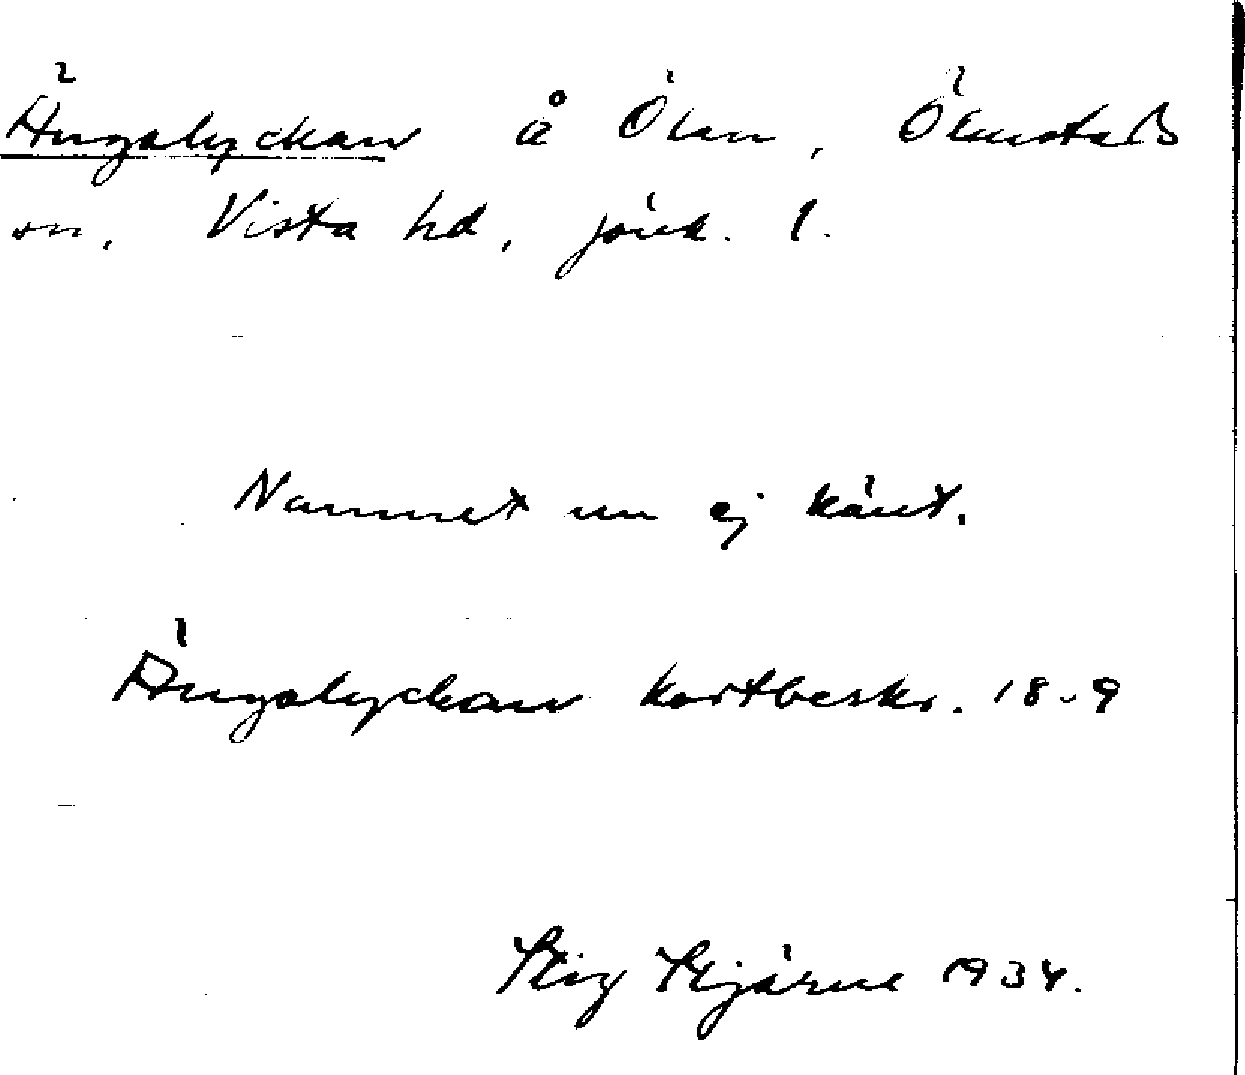 Ängalyckan å Ölan, Ölmstads
sn. Vista hd, Jönk. l.
Namnet nu ej känt.
Ängalyckan kartbeskr. 18-9
Stig Stjärne 1934.